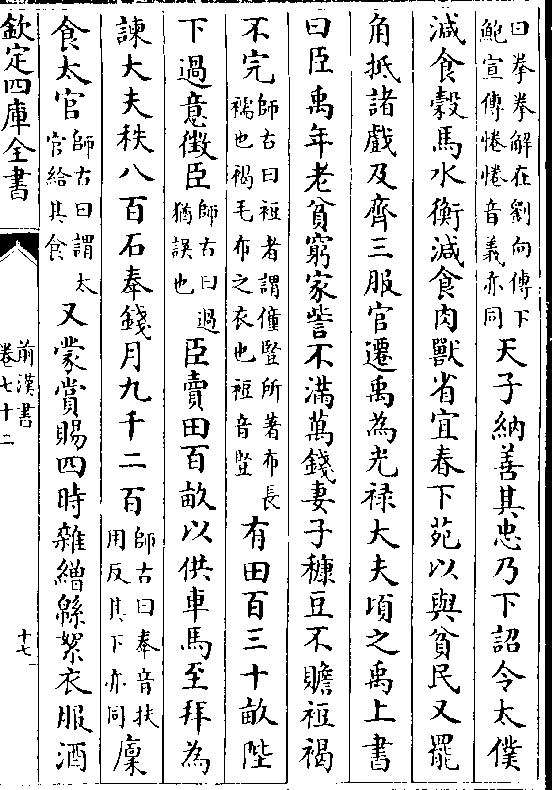 曰拳拳解在劉向傳下
鮑宣傳惓惓音義亦同
天子納善其忠乃下詔令太僕
減食穀馬水衡減食肉獸省宜春下苑以與貧民又罷
角抵諸戲及齊三服官遷禹為光祿大夫頃之禹上書
曰臣禹年老貧窮家訾不滿萬錢妻子糠豆不贍裋褐
不完
師古曰裋者謂僮豎所著布長
襦也褐毛布之衣也裋音豎
有田百三十畝陛
下過意徵臣
師古曰過
猶誤也
臣賣田百畝以供車馬至拜為
諫大夫秩八百石奉錢月九千二百
師古曰奉音扶
用反其下亦同
廩
食太官
師古曰謂太
官給其食
又蒙賞賜四時雜繒緜絮衣服酒
欽定四庫全書
前漢書
卷七十二
十七